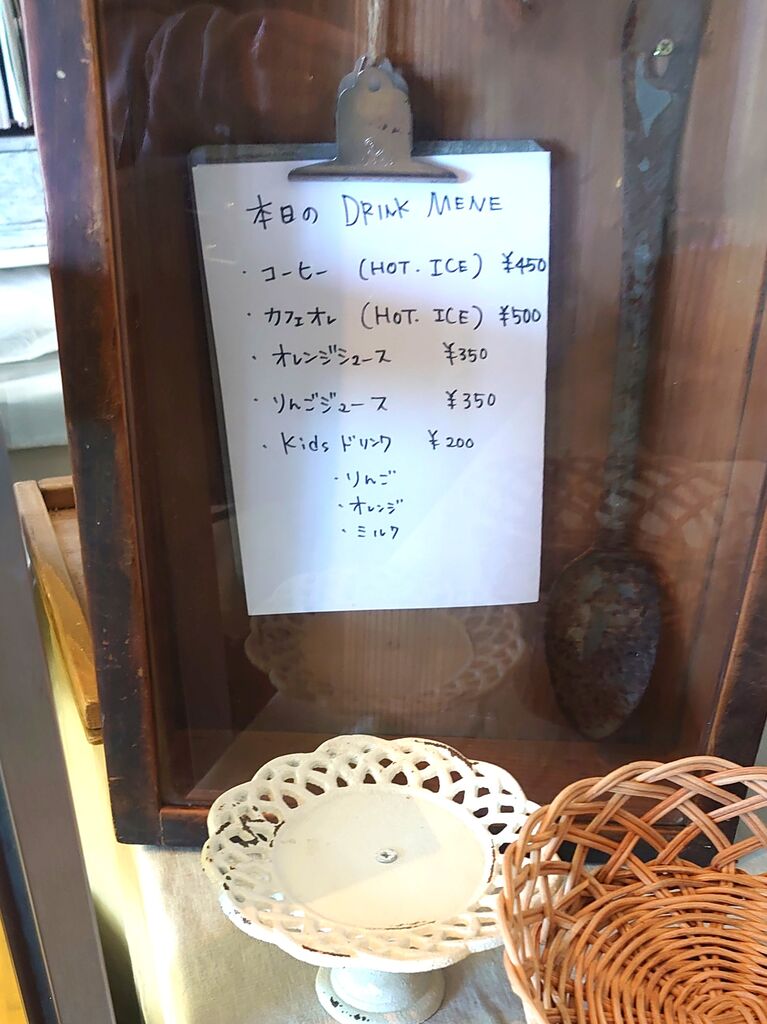 本日の DRINK MENE
・コーヒー (HOT. ICE) ¥450
・カフェオレ (HOT. ICE) ¥500
・オレンジジュース ¥350
・りんごジュース ¥350
・Kids ドリンク ¥200
・りんご
・オレンジ
・ミルク